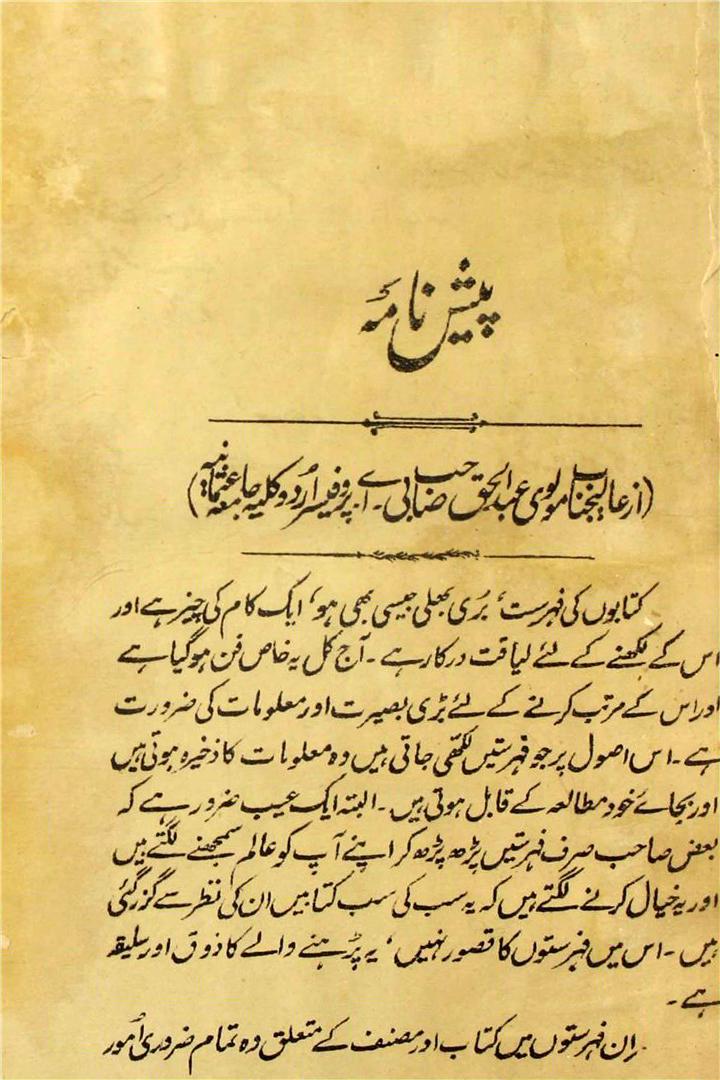 پیش نامہ
(از عالیجناب مولوی عبدالحق صاحب بی۔ اے پروفیسر اُردو کلیہ جامعہ عثمانیہ)
کتابوں کی فہرست، بُری بھلی جیسی بھی ہو، ایک کام کی چیز ہے اور
اس کے لکھنے کے لئے لیاقت درکار ہے۔ آج کل یہ خاص فن ہوگیا ہے
اور اس کے مرتب کرنے کے لئے بڑی بصیرت اور معلومات کی ضرورت
ہے۔ اس اصول پر جو فہرستیں لکھی جاتی ہیں وہ معلومات کا ذخیرہ ہوتی ہیں
اور بجائے خود مطالعہ کے قابل ہوتی ہیں۔ البتہ ایک عیب ضرور ہے کہ
بعض صاحب صرف فہرستیں پڑھ پڑھ کر اپنے آپ کو عالم سمجھنے لگتے ہیں
اور یہ خیال کرنے لگتے ہیں کہ یہ سب کی سب کتابیں ان کی نظر سے گزر گئی
ہیں۔ اس میں فہرستوں کا قصور نہیں، یہ پڑہنے والے کا ذوق اور سلیقہ
ہے۔
اِن فہرستوں میں کتاب اور مصنف کے متعلق وہ تمام ضروری اُمور